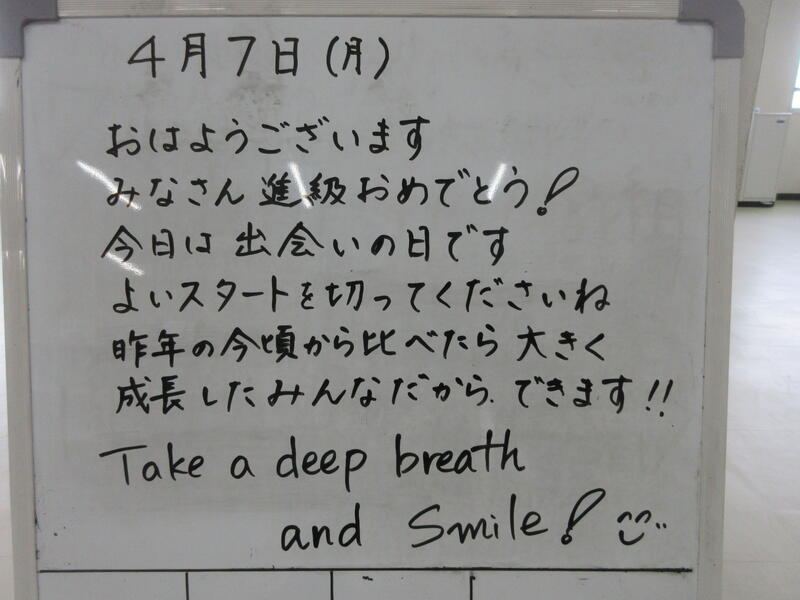 4月7日(月)
おはようございます
みなさん進級おめでとう!
今日は出会いの日です
よいスタートを切ってくださいね
昨年の今頃から比べたら大きく
成長したみんなだから.できます!!
Take a deep breath
and Smile!